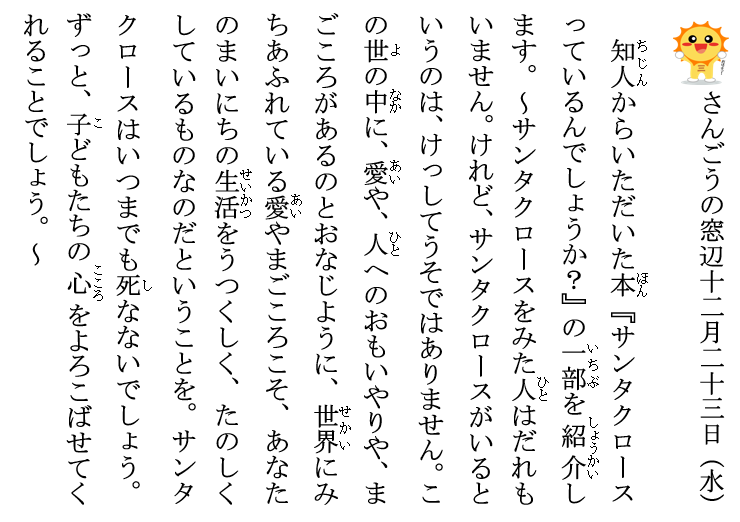 さんごうの窓辺十二月二十三日（水）
知人からいただいた本『サンタクロース
っているんでしょうか？』の一部を紹介し
ます。～サンタクロースをみた人はだれも
いません。けれど、サンタクロースがいると
いうのは、けっしてうそではありません。こ
の世の中に、愛や、人へのおもいやりや、ま
ごころがあるのとおなじように、世界にみ
ちあふれている愛やまごころこそ、あなた
のまいにちの生活をうつくしく、たのしく
しているものなのだということを。サンタ
クロースはいつまでも死なないでしょう。
ずっと、子どもたちの心をよろこばせてく
れることでしょう。～